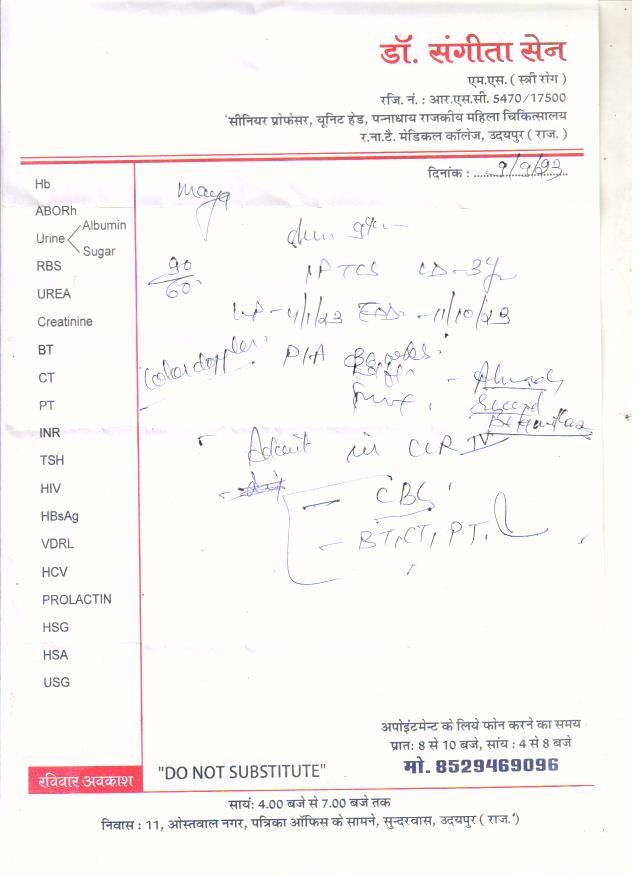 डॉ. संगीता सेन
एम.एस. ( स्त्री रोग )
रजि. नं. : आर.एस.सी. 5470/17500
सीनियर प्रोफेसर, यूनिट हेड, पन्नाधाय राजकीय महिला चिकित्सालय
र.ना.टै. मेडिकल कॉलेज, उदयपुर ( राज. )
दिनांक : 9/9/23
Hb
Maya
ABORh
Urine Albumin
Sugar
RBS
90
60
UREA
Creatinine
4/1/23 EDD - 11/10/23
BT
Color doppler P/A
CT
Already
PT
Second
INR
Admit in CLR IV
TSH
HIV
CBC
HBsAg
BT, CT, PT,
VDRL
HCV
PROLACTIN
HSG
HSA
USG
अपोइंटमेन्ट के लिये फोन करने का समय
प्रात: 8 से 10 बजे, सांय : 4 से 8 बजे
मो. 8529469096
रविवार अवकाश
"DO NOT SUBSTITUTE"
सायं: 4.00 बजे से 7.00 बजे तक
निवास : 11, ओस्तवाल नगर, पत्रिका ऑफिस के सामने, सुन्दरवास, उदयपुर ( राज. )